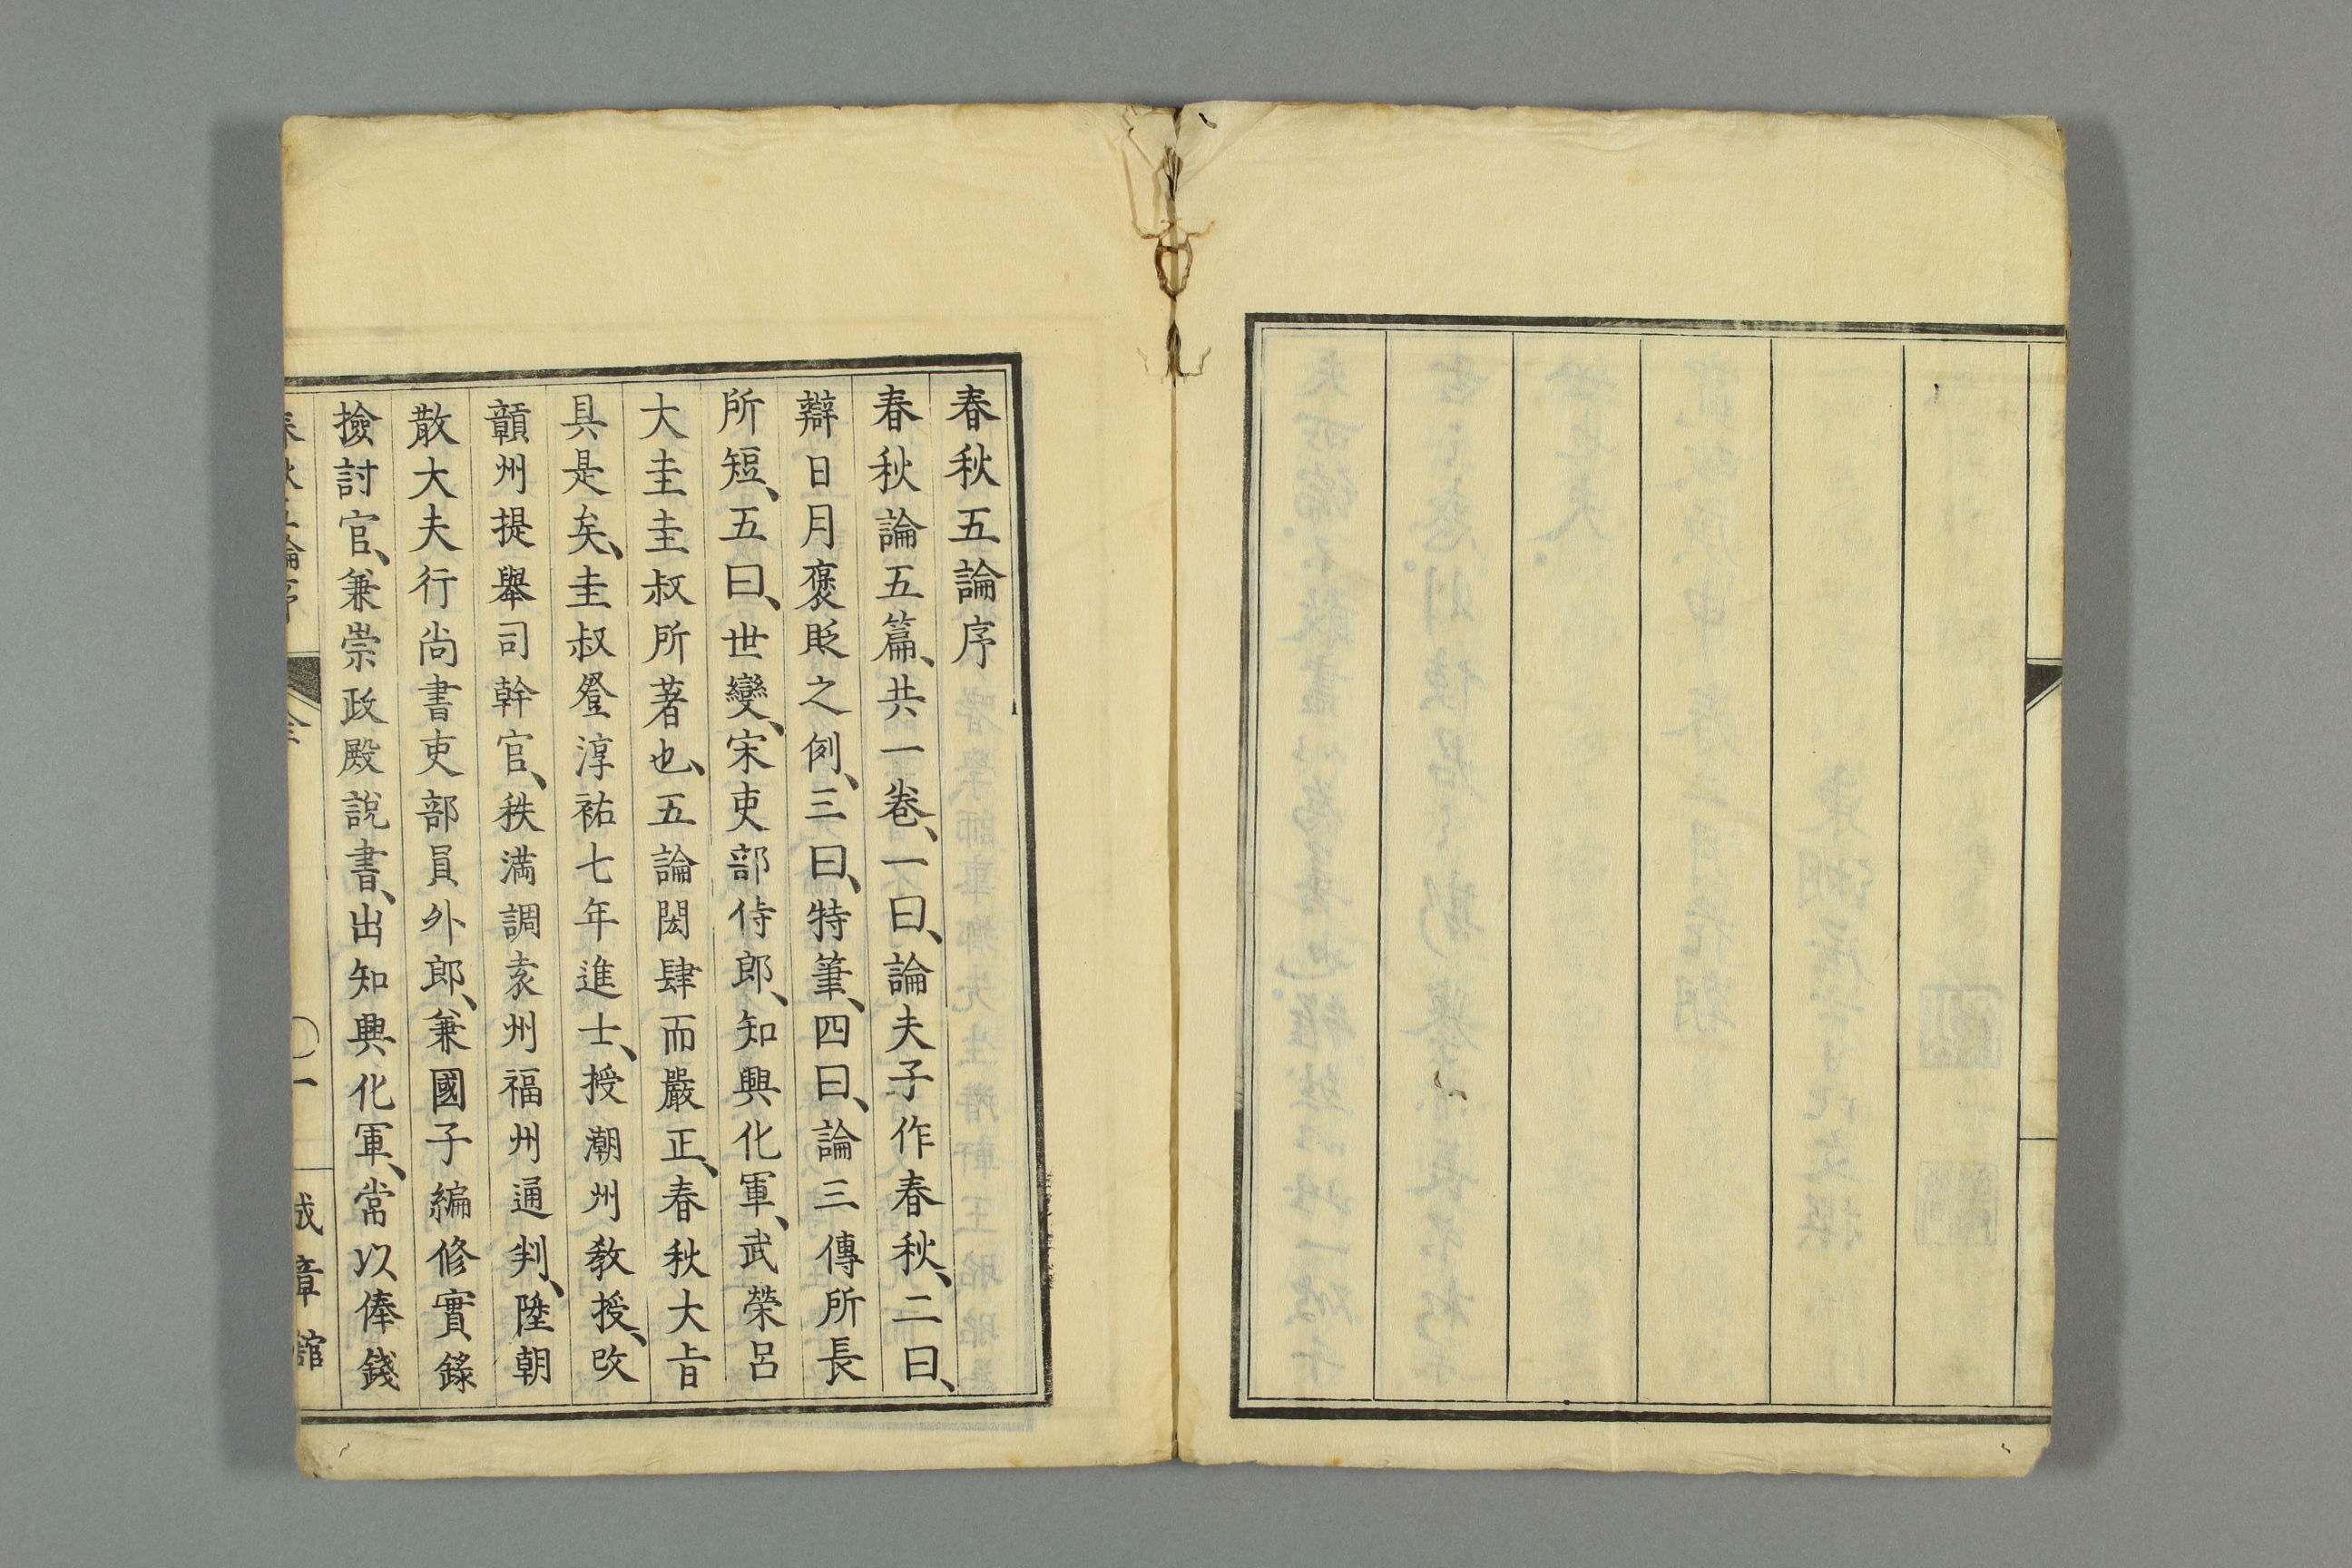 春秋五論序
春秋論五篇、共一卷、一曰、論夫子作春秋、二曰、
辯日月褒貶之例、三曰、特筆、四曰、論三傳所長
所短、五曰、世變、宋吏部侍郎、知興化軍、武榮呂
大圭圭叔所著也、五論閎肆而嚴正、春秋大旨
具是矣、圭叔登淳祐七年進士、授潮州教授、改
贑州提舉司幹官、秩滿調袁州福州通判、陞朝
散大夫行尚書吏部員外郎、兼國子編修實錄
撿討官、兼崇政殿說書、出知興化軍、常以俸錢
春秋五論序
一
成章館